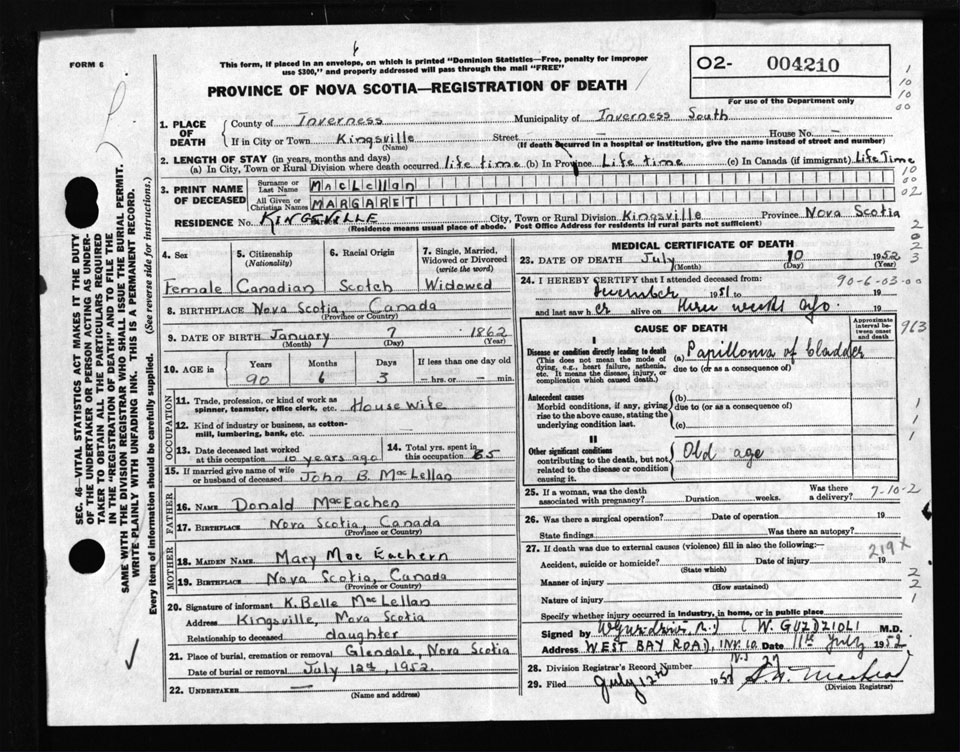 FORM 6
This form, if placed in an envelope, on which is printed "Dominion Statistics—Free, penalty for improper
use $300," and properly addressed will pass through the mail "FREE"
PROVINCE OF NOVA SCOTIA—REGISTRATION OF DEATH
O2- 004210
For use of the Department only
1. PLACE OF DEATH
County of Inverness Municipality of Inverness South
If in City or Town Kingsville Street — House No. —
(Name) (If death occurred in a hospital or institution, give the name instead of street and number)
2. LENGTH OF STAY (in years, months and days)
(a) In City, Town or Rural Division where death occurred life time (b) In Province Life time (c) In Canada (if immigrant) Life Time
3. PRINT NAME OF DECEASED
Surname or Last Name MacLellan
All Given or Christian Names MARGARET
RESIDENCE No. KINGSVILLE City, Town or Rural Division Kingsville Province Nova Scotia
(Residence means usual place of abode. Post Office Address for residents in rural parts not sufficient)
4. Sex Female
5. Citizenship (Nationality) Canadian
6. Racial Origin Scotch
7. Single, Married, Widowed or Divorced (write the word) Widowed
8. BIRTHPLACE Nova Scotia, Canada
(Province or Country)
9. DATE OF BIRTH January 7 1862
(Month) (Day) (Year)
10. AGE in Years 90 Months 6 Days 3 If less than one day old — hrs. or — min.
OCCUPATION
11. Trade, profession, or kind of work as spinner, teamster, office clerk, etc. House wife
12. Kind of industry or business, as cotton-mill, lumbering, bank, etc.
13. Date deceased last worked at this occupation 10 years ago
14. Total yrs. spent in this occupation 65
15. If married give name of wife or husband of deceased John B. MacLellan
FATHER
16. NAME Donald MacEachen
17. BIRTHPLACE Nova Scotia, Canada
(Province or Country)
MOTHER
18. MAIDEN NAME Mary Mac Eachern
19. BIRTHPLACE Nova Scotia, Canada
(Province or Country)
20. Signature of informant K. Belle MacLellan
Address Kingsville, Nova Scotia
Relationship to deceased daughter
21. Place of burial, cremation or removal Glendale, Nova Scotia
Date of burial or removal July 12th, 1952.
22. UNDERTAKER —
(Name and address)
MEDICAL CERTIFICATE OF DEATH
23. DATE OF DEATH July 10 1952
(Month) (Day) (Year)
24. I HEREBY CERTIFY that I attended deceased from:
December 1951 to 19
and last saw h er alive on three weeks ago. 19
90-6-03-00
CAUSE OF DEATH
Approximate interval between onset and death
I
Disease or condition directly leading to death
(This does not mean the mode of dying, e.g., heart failure, asthenia, etc. It means the disease, injury, or complication which caused death.)
(a) Papilloma of bladder
due to (or as a consequence of)
Antecedent causes
Morbid conditions, if any, giving rise to the above cause, stating the underlying condition last.
(b)
due to (or as a consequence of)
(c)
II
Other significant conditions
contributing to the death, but not related to the disease or condition causing it.
Old age
25. If a woman, was the death associated with pregnancy? Duration weeks. Was there a delivery?
7-10-2
26. Was there a surgical operation? Date of operation 19
State findings Was there an autopsy?
27. If death was due to external causes (violence) fill in also the following:—
219 x
Accident, suicide or homicide? Date of injury 19
(State which)
Manner of injury
(How sustained)
Nature of injury
Specify whether injury occurred in industry, in home, or in public place
Signed by (W. GUZDZIOLI M.D.
Address WEST BAY ROAD, INV. CO. N.S. Date 11th July 1952
28. Division Registrar's Record Number 27
29. Filed July 12th 195
(Division Registrar)
SEC. 46—VITAL STATISTICS ACT MAKES IT THE DUTY
OF THE UNDERTAKER OR PERSON ACTING AS UNDER-
TAKER TO OBTAIN ALL THE PARTICULARS REQUIRED
IN THE "REGISTRATION OF DEATH" AND TO FILE THE
SAME WITH THE DIVISION REGISTRAR WHO SHALL ISSUE THE BURIAL PERMIT.
WRITE PLAINLY WITH UNFADING INK. THIS IS A PERMANENT RECORD.
Every item of information should be carefully supplied. (See reverse side for instructions.)
963